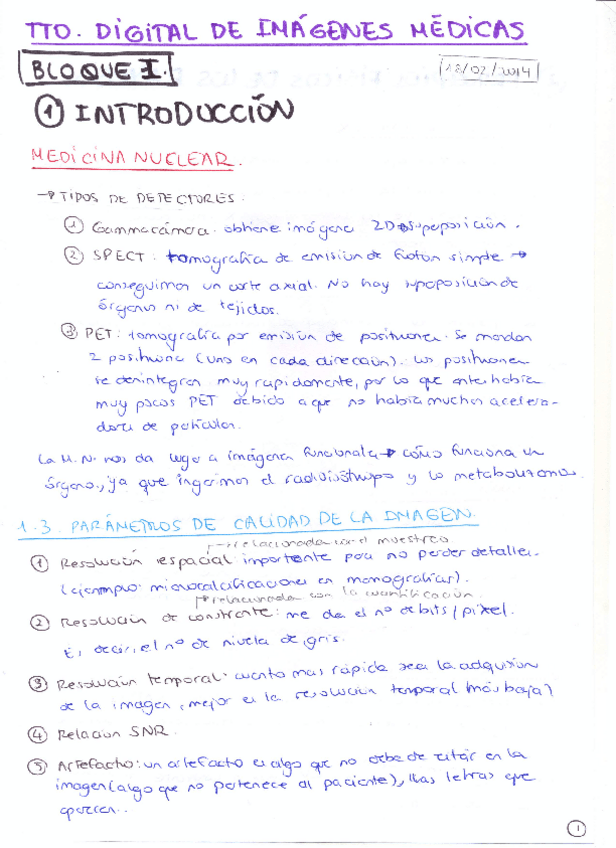 TTO. DIGITAL DE IMÁGENES MÉDICAS
BLOQUE I.
18/02/2014
① INTRODUCCIÓN
MEDICINA NUCLEAR.
→ TIPOS DE DETECTORES.
① Gammacámara: obtiene imágene 2D superposición.
② SPECT: tomografía de emisión de fotón simple →
conseguimos un corte axial. No hay superposición de
órganos ni de tejidos.
③ PET: tomografía por emisión de positrones. Se mandan
2 positrones (uno en cada dirección). Los positrones
se desintegran muy rapidamente, por lo que antes había
muy pocos PET debido a que no había muchos acelera-
dores de partículas.
La M.N. nos da lugar a imágenes funcionales → cómo funciona un
órgano, ya que ingerimos el radioisótopo y lo metabolizamos.
1.3. PARÁMETROS DE CALIDAD DE LA IMAGEN.
→ relacionada con el muestreo
① Resolución espacial: importante para no perder detalles.
(ejemplo: microcalcificaciones en monografías).
→ relacionada con la cuantificación.
② Resolución de contraste: me da el nº de bits/pixel.
Es decir, el nº de niveles de gris.
③ Resolución temporal: cuanto mas rápida sea la adquisión
de la imagen, mejor es la resolución temporal (más baja)
④ Relación SNR.
⑤ Artefacto: un artefacto es algo que no debe de estár en la
imagen (algo que no pertenece al paciente), las letras que
aparecen.
1